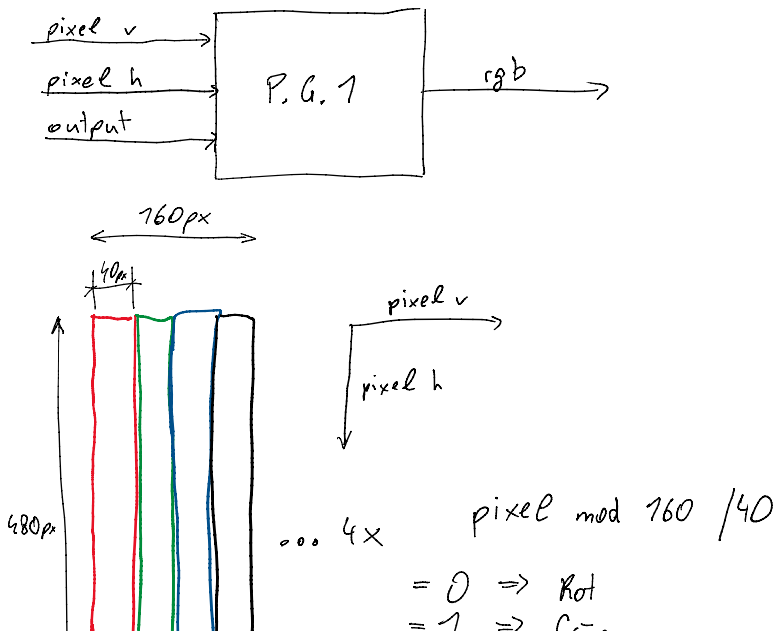 pixel v
pixel h
output
P.G.1
rgb
160px
40px
pixel v
pixel h
480px
... 4x
pixel mod 160 /40
= 0 => Rot
= 1 =>